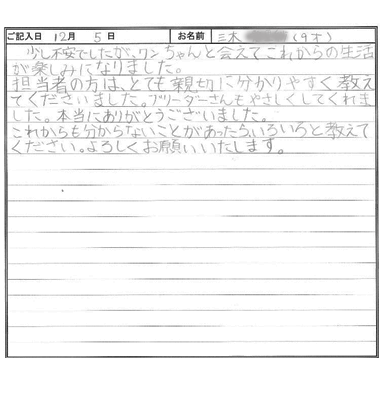 ご記入日 12月 5日 お名前 三木 (9才)
少し不安でしたが、ワンちゃんと会えてこれからの生活
が楽しみになりました。
担当者の方は、とても親切に分かりやすく教え
てくださいました。ブリーダーさんもやさしくしてくれま
した。本当にありがとうございました。
これからも分からないことがあったら、いろいろと教えて
ください。よろしくお願いいたします。